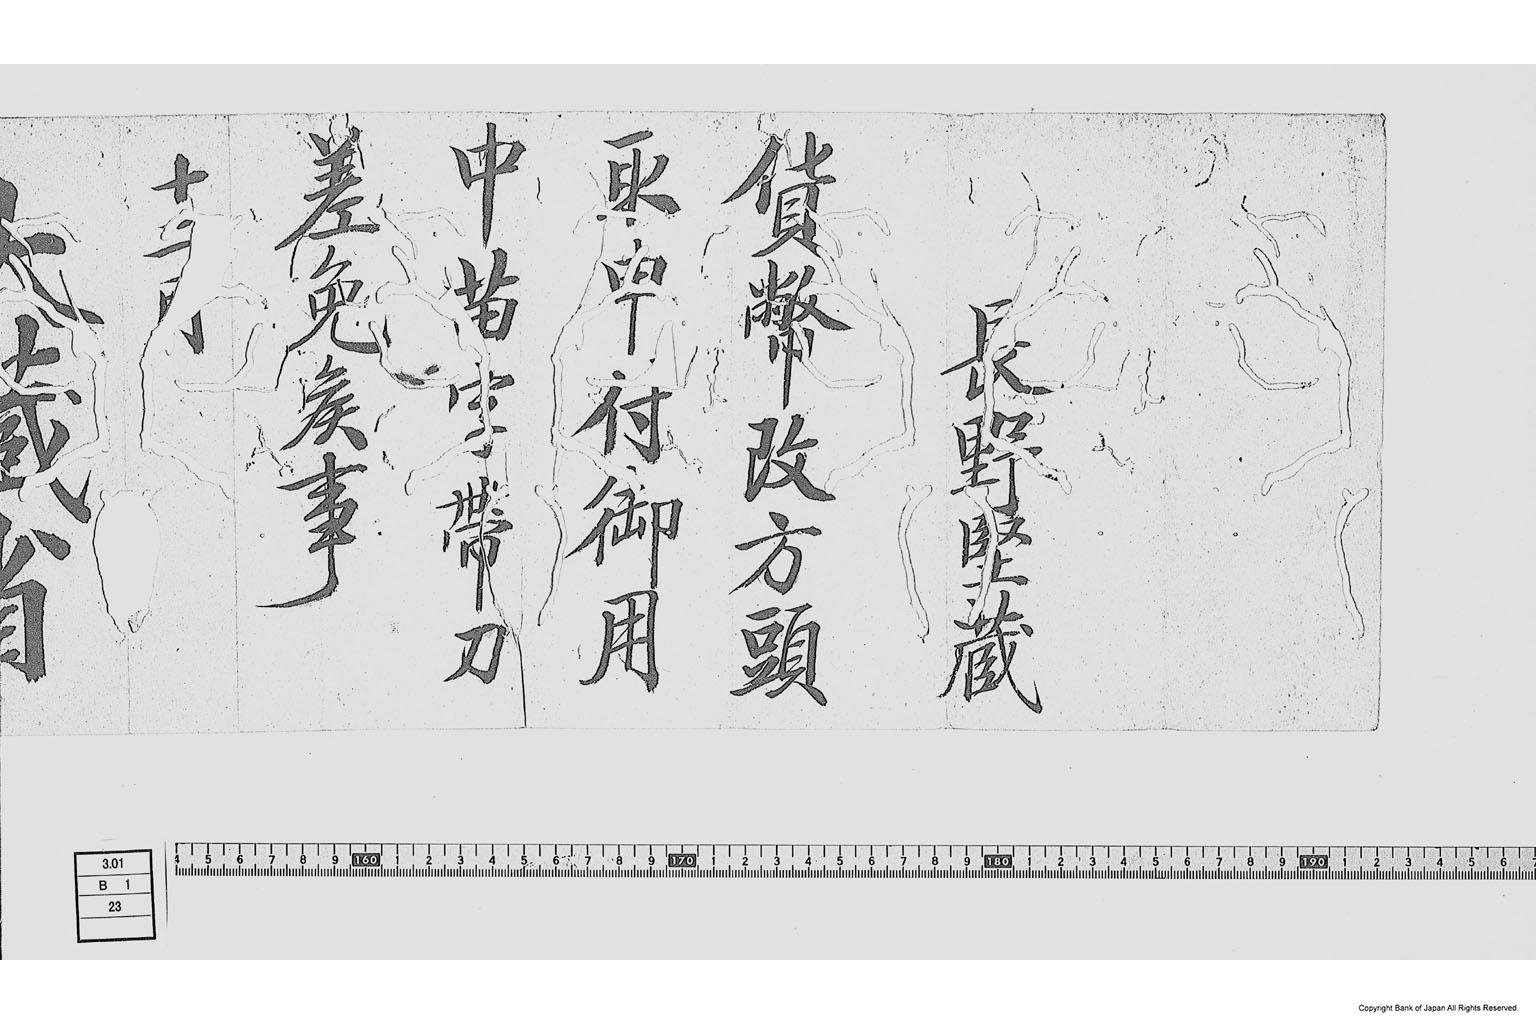 長野堅蔵
貨幣改方頭
取申付御用
中苗字帯刀
差免候事
十二月
大蔵省
3.01
B 1
23
4 5 6 7 8 9 160 1 2 3 4 5 6 7 8 9 170 1 2 3 4 5 6 7 8 9 180 1 2 3 4 5 6 7 8 9 190 1 2 3 4 5 6 7
Copyright Bank of Japan All Rights Reserved.